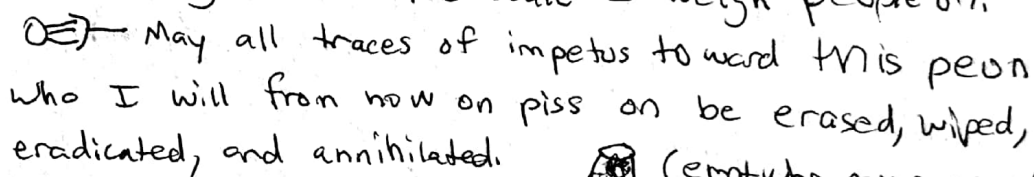 weigh people on.
May all traces of impetus toward this peon
who I will from now on piss on be erased, wiped,
eradicated, and annihilated.